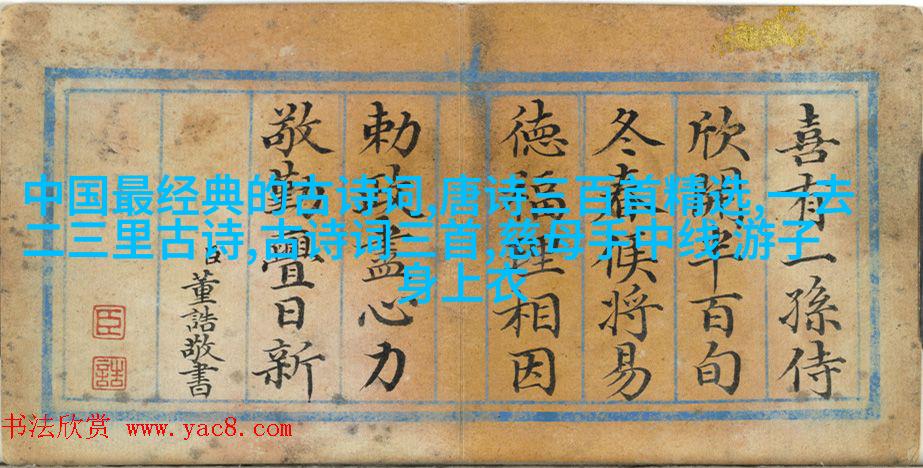 中国最经典的古诗词,唐诗三百首精选,一去
二三里古诗,古诗词三首,慈母手中线 游子
身上衣
喜有一孫侍
欣開百旬
冬春候將易
德福理相因
勅政盡心力
敬勤亹日新
臣董誥敬書
臣
誥
书法欣赏 www.yac8.com